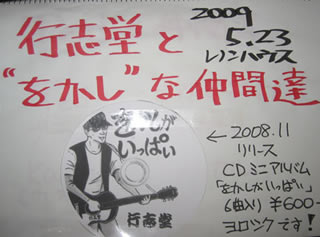 行志堂と
2009
5.23
レノンハウス
"をかし"な仲間達
をかしが
いっぱい
行志堂
← 2008.11
リリース
CDミニアルバム
「をかしがいっぱい」
6曲入り ¥600-
ヨロシクです!